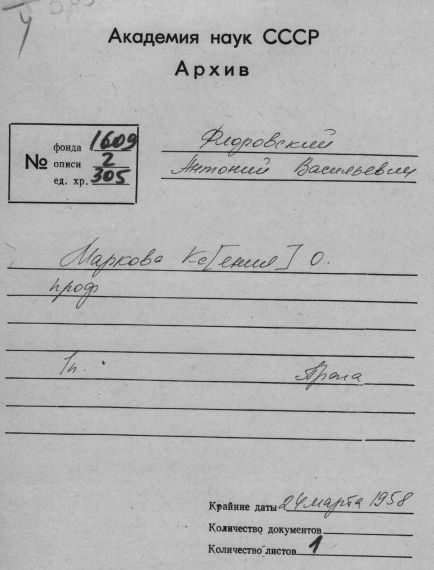 Академия наук СССР
Архив
№
фонда 1609
описи 2
ед. хр. 305
Флоровский
Антоний Васильевич
Маркова Кс[ения] О.
проф
1 п. Прага
Крайние даты 24 марта 1958
Количество документов
Количество листов 1